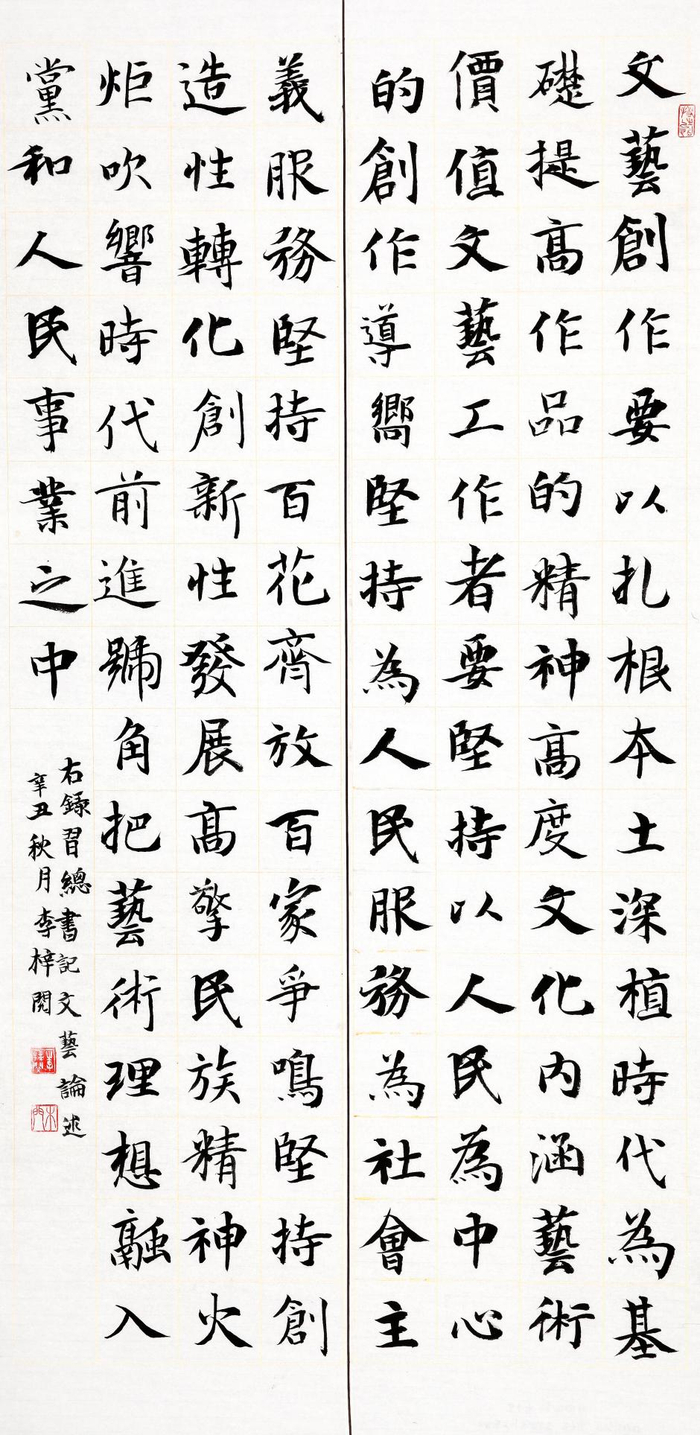 文藝創作要以扎根本土深植時代為基
礎提高作品的精神高度文化內涵藝術
價值文藝工作者要堅持以人民為中心
的創作導嚮堅持為人民服務為社會主
義服務堅持百花齊放百家爭鳴堅持創
造性轉化創新性發展高擎民族精神火
炬吹響時代前進號角把藝術理想融入
黨和人民事業之中
右錄習總書記文藝論述
辛丑秋月李梓閱